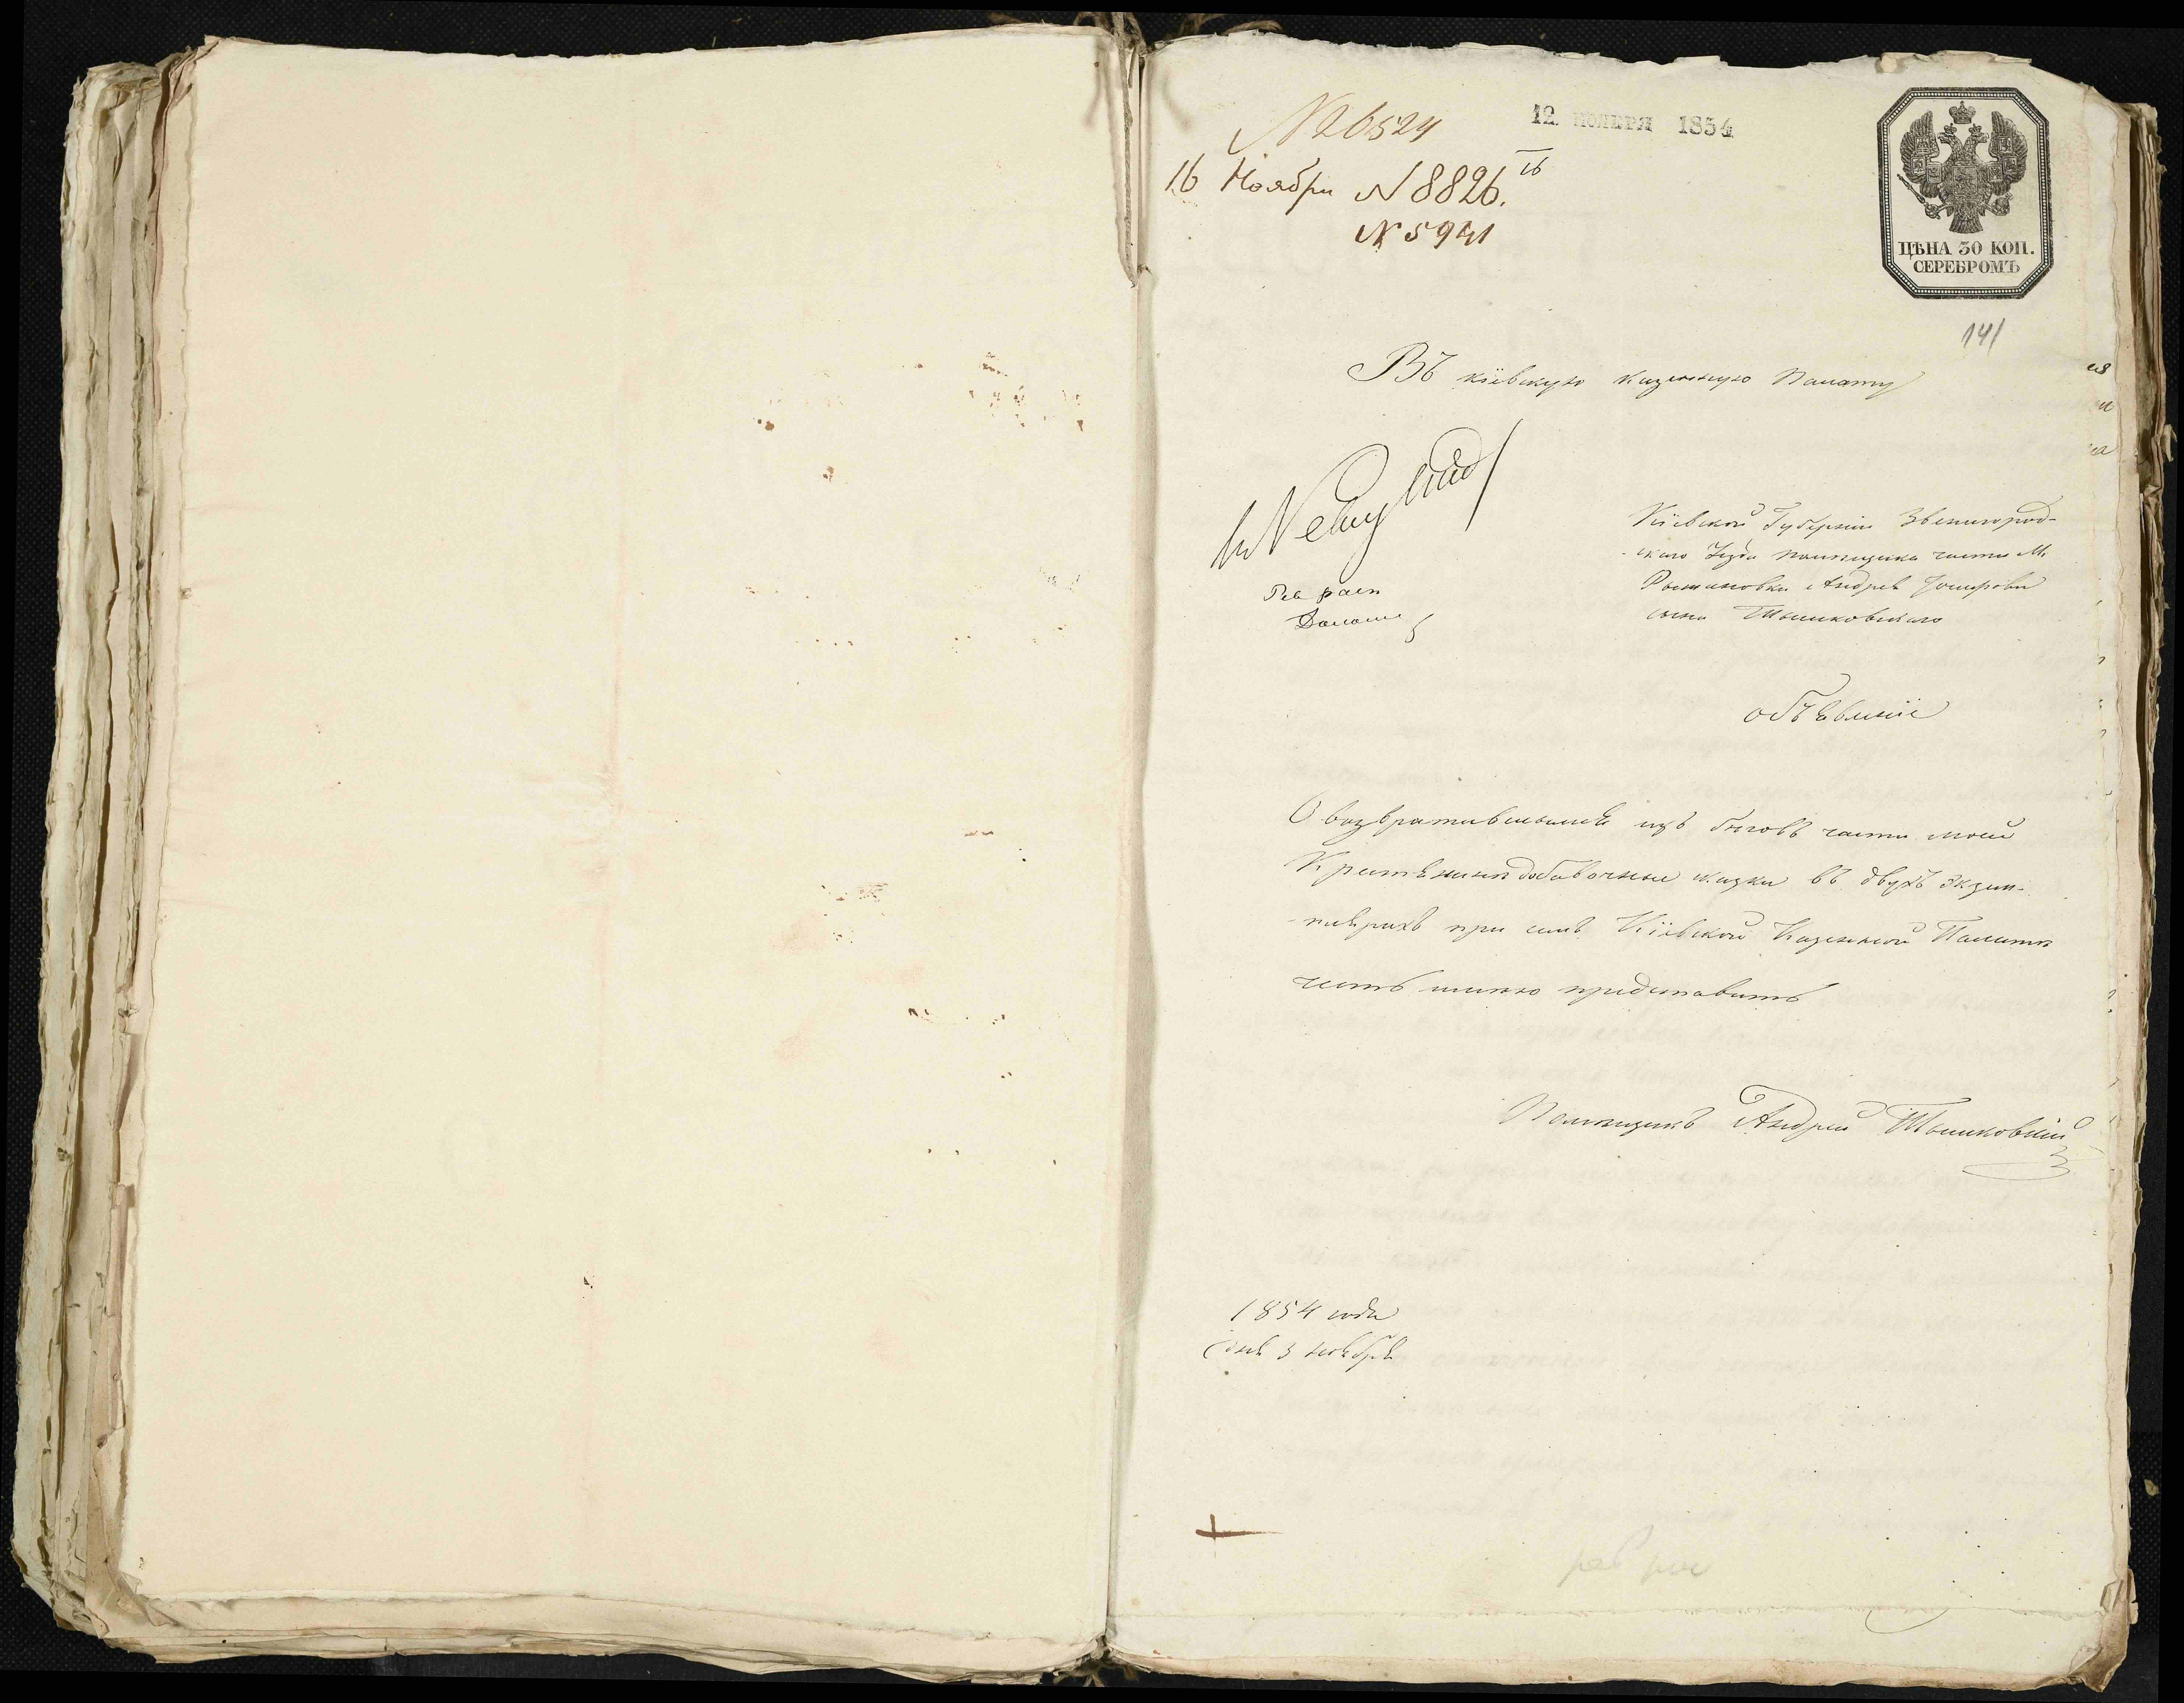 № 6524
12 НОЯБРЯ 1854
16 Ноября № 8826. 16
№ 5941
ЦѢНА 30 КОП.
СЕРЕБРОМЪ
141
Въ кіевскую казенную Палату
Кіевской Губерніи Звенигород-
скаго Уезда помѣщика части М.
Рыжановки Андрея
сына Тышковскаго
объявленіе
О возвратившемся изъ беговъ части моей
Крестянинѣ добавочные сказки въ двухъ экзем-
плярахъ при семъ Кіевской Казенной Палатѣ
честь имѣю представить
Помѣщикъ Андрей Тышковскій
1854 года
дня 3 ноября